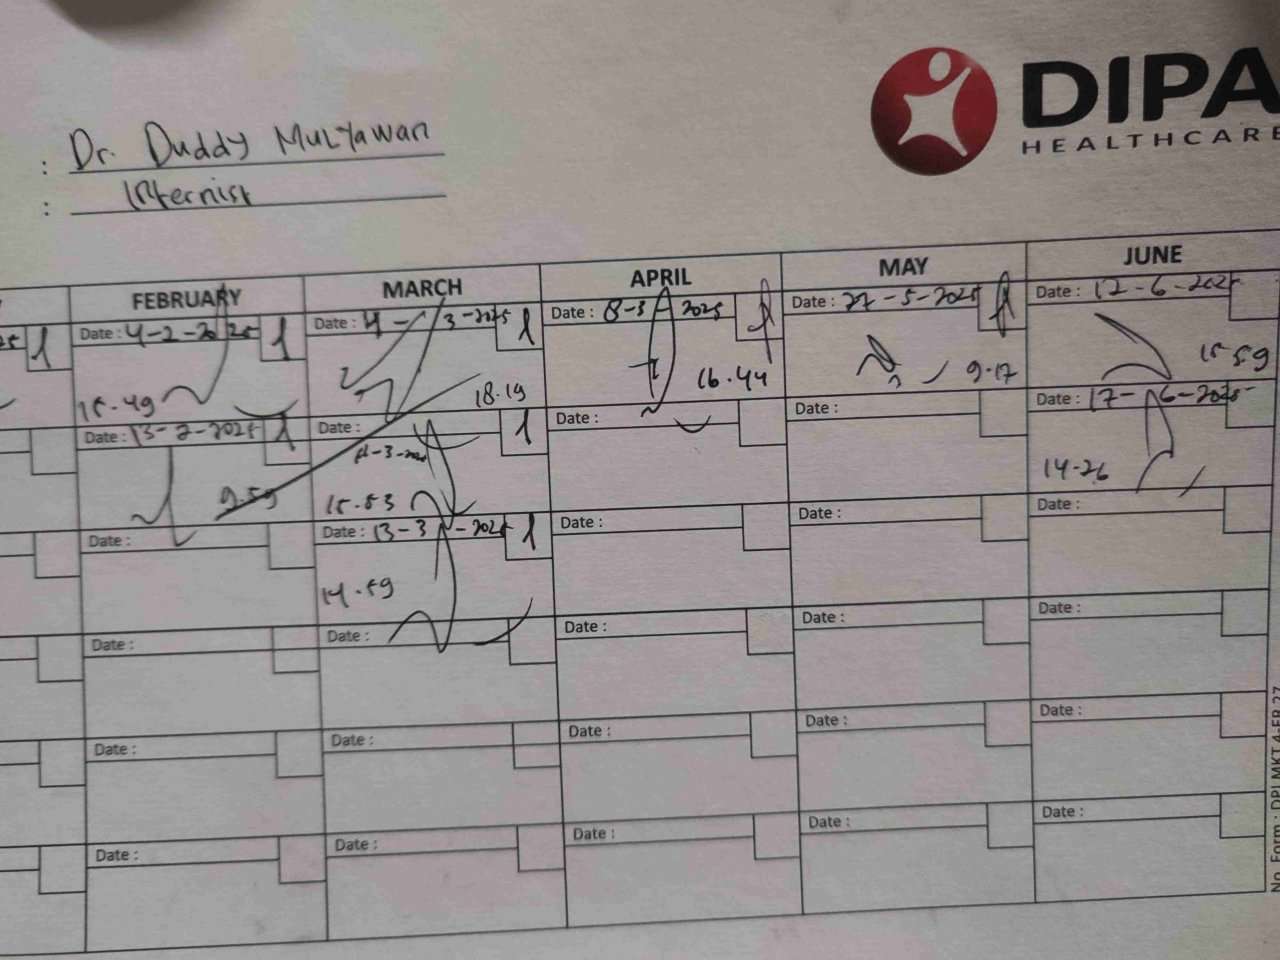 DIPA
HEALTHCARE
: Dr. Duddy Mulyawan
: Internist
FEBRUARY MARCH APRIL MAY JUNE
Date : 4-2-2025 1 Date : 4-3-2025 1 Date : 8-3-2025 Date : 27-5-2025 Date : 12-6-2025
15.49 18.19 16.44 9.17 15.59
Date : 13-2-2025 1 Date : 1 Date : Date : Date : 17-6-2025
9.59 15.53 14.26
Date : Date : 13-3-2025 1 Date : Date : Date :
14.59
Date : Date : Date : Date : Date :
Date : Date : Date : Date : Date :
Date : Date : Date : Date : Date :
No. Form : DPI.MKT.4-FR.27